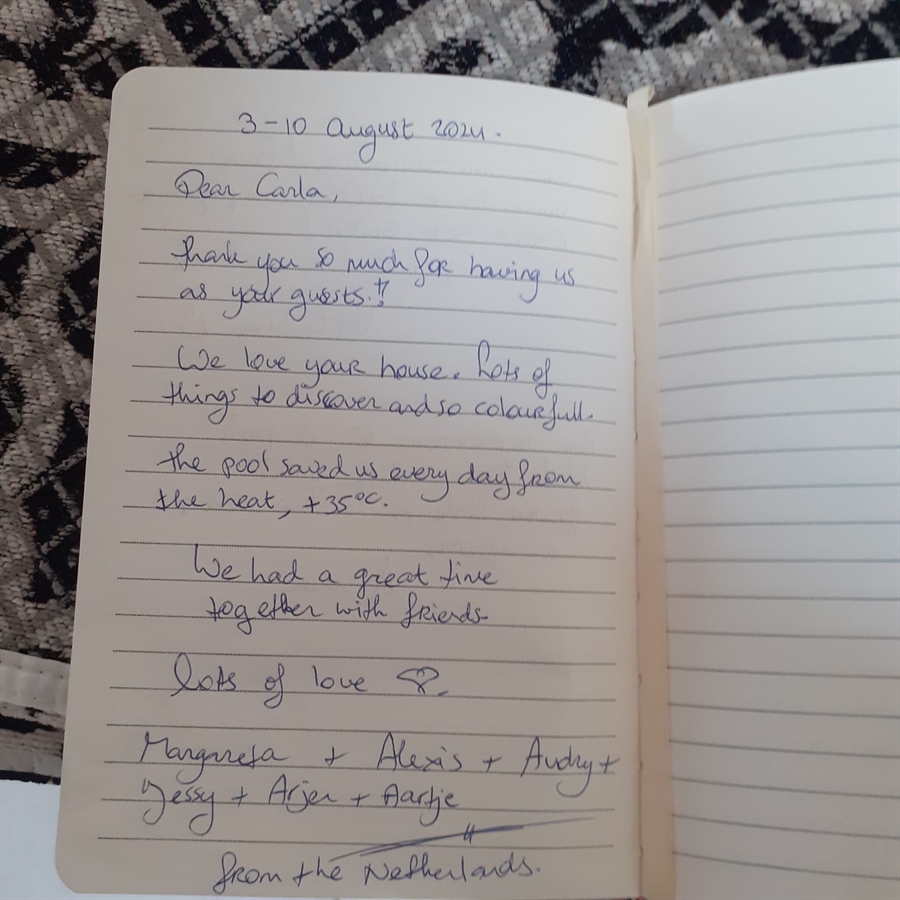 3-10 August 2024.
Dear Carla,
thank you so much for having us
as your guests.!
We love your house. Lots of
things to discover and so colourfull.
the pool saved us every day from
the heat, +35°C.
We had a great time
together with friends.
lots of love
Margareta + Alexis + Audry +
Jessy + Arjen + Aartje
from the Netherlands.